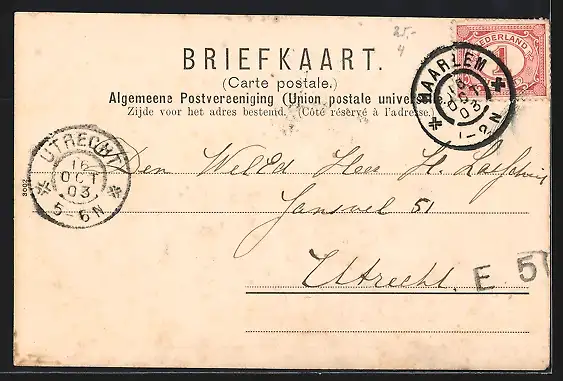 25,-
4
BRIEFKAART.
(Carte postale.)
Algemeene Postvereeniging (Union postale universe
Zijde voor het adres bestemd. (Côté réservé à l'adresse.)
NEDERLAND
1
HAARLEM
15 OCT 03
1-2N
UTRECHT
15
OCT
03
5-6N
3002
Den WelEd Heer H.
Jansvel 51
Utrecht.
E 51